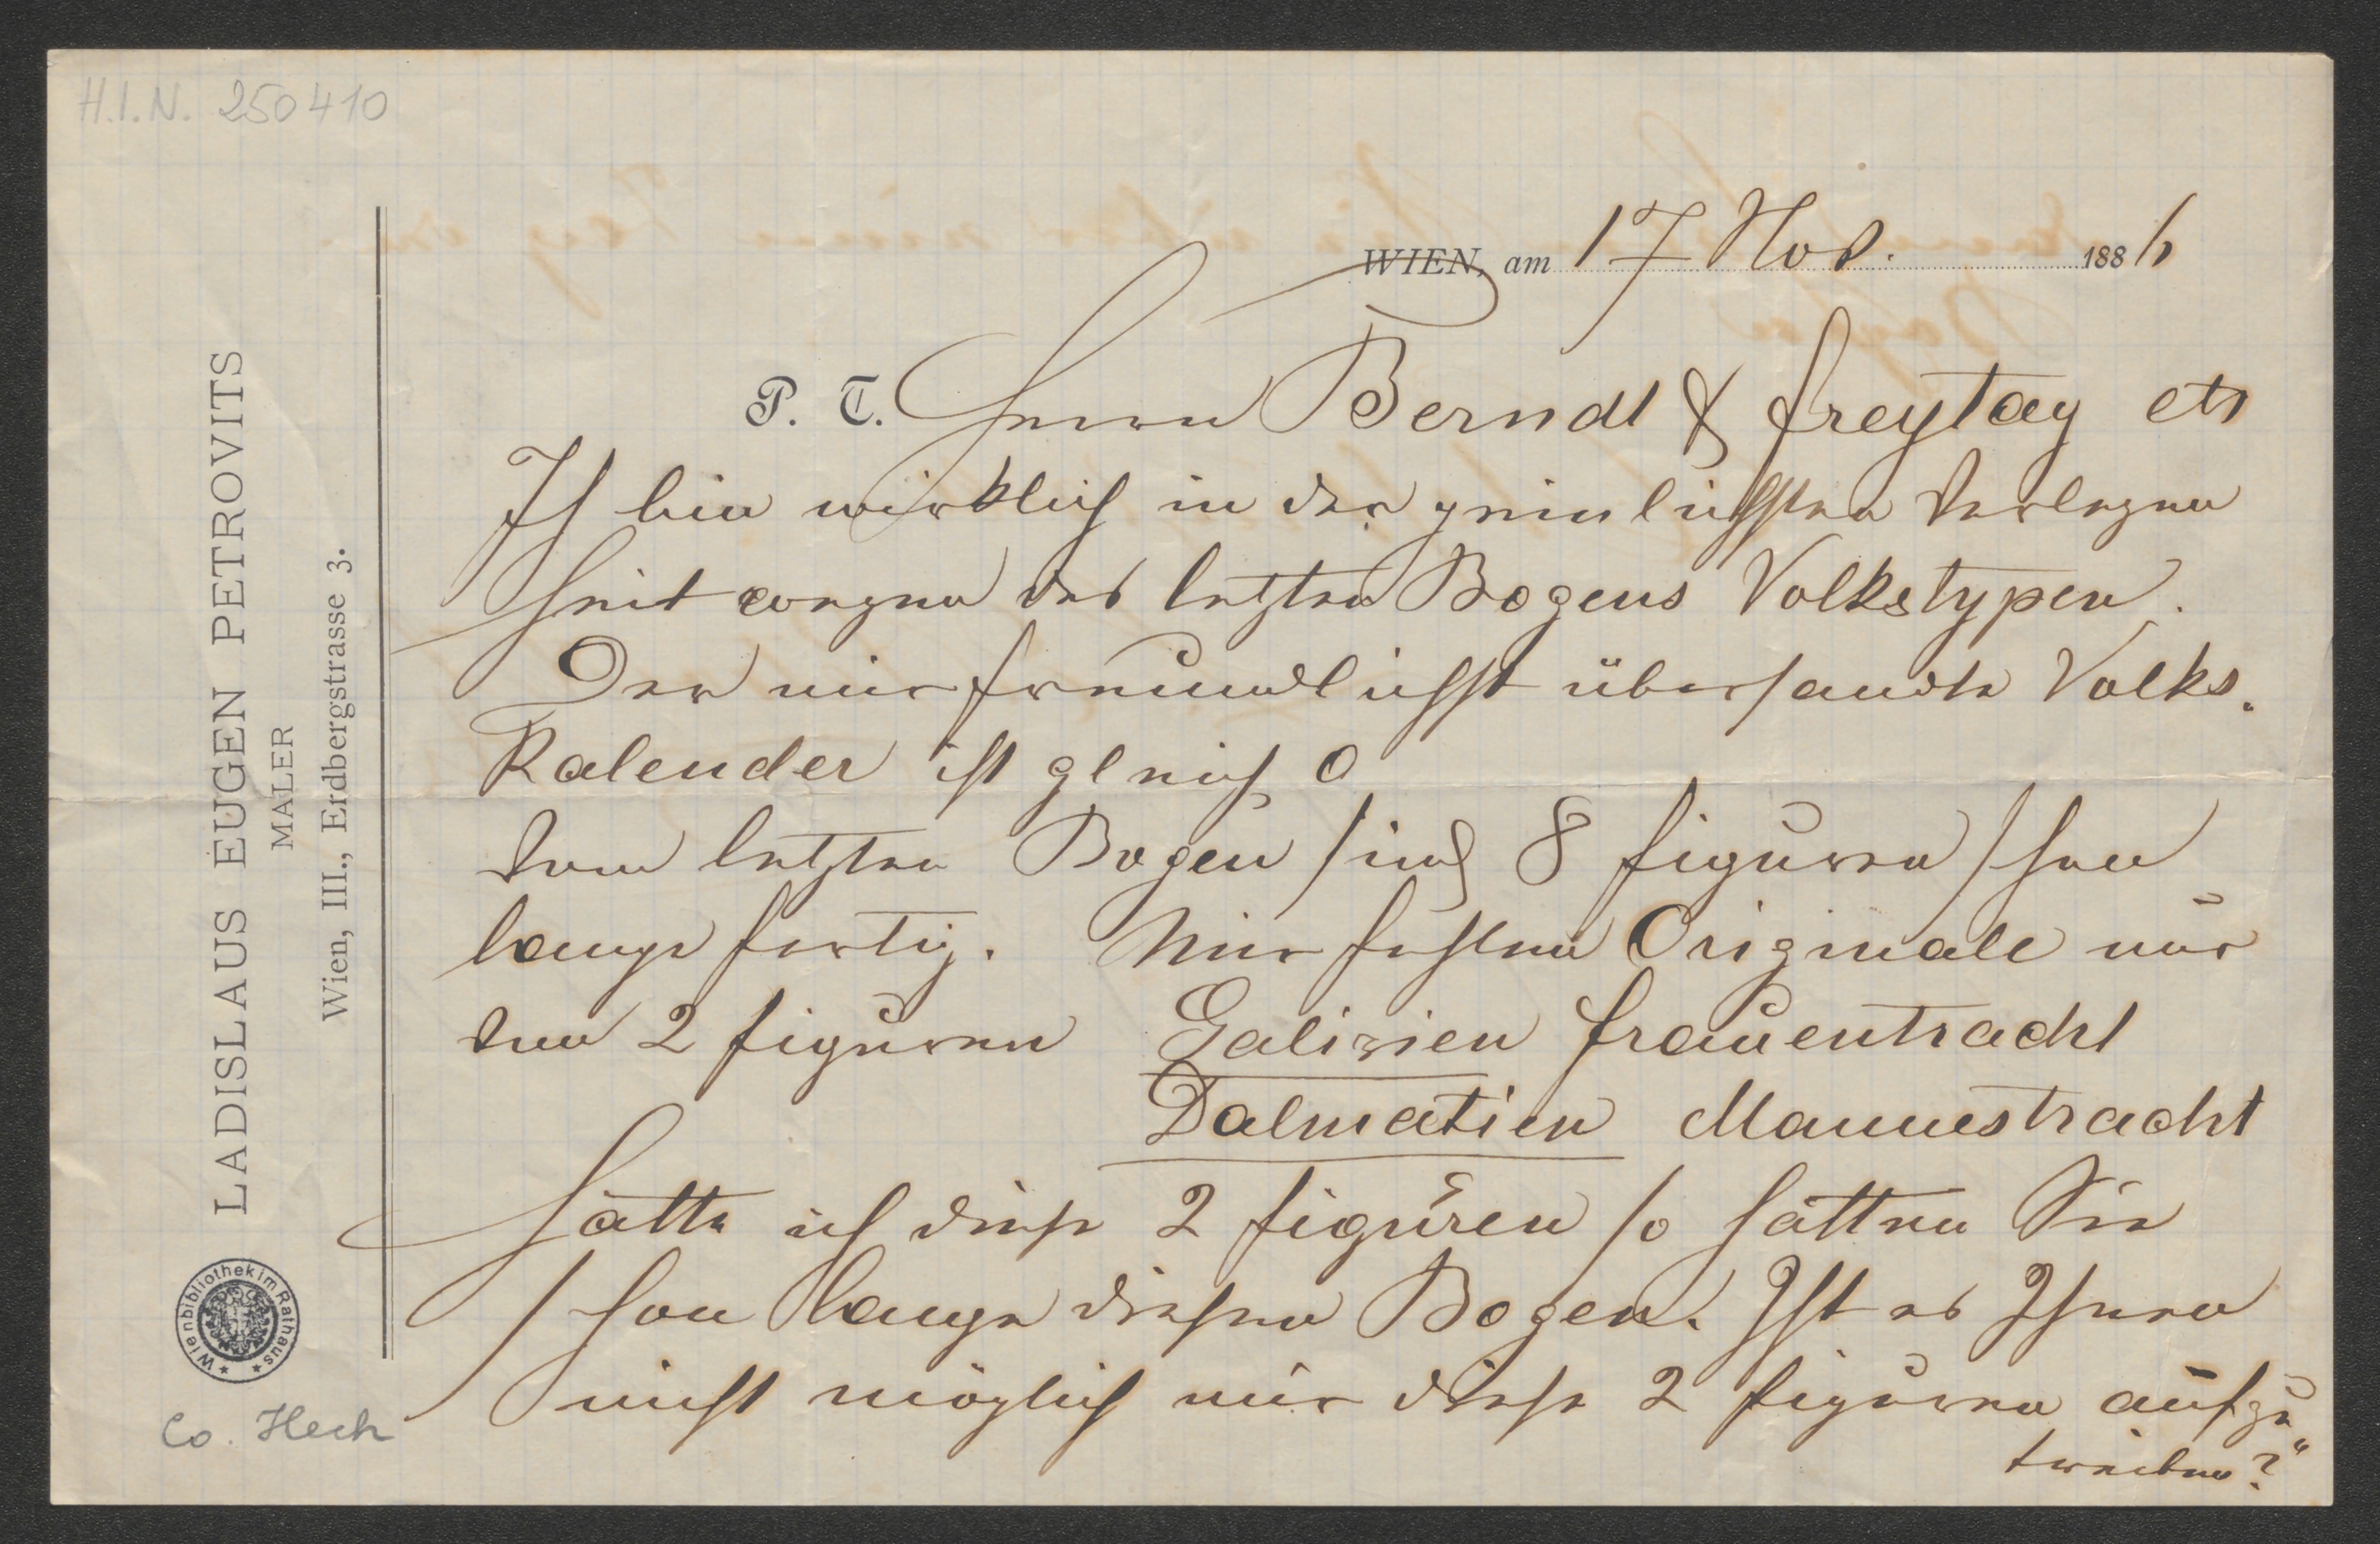 H.I.N. 250410
WIEN, am 17 Nov. 1886
P. T. Herrn Berndt & Freytag etc
Ich bin wirklich in der peinlichsten Verlegen
heit wegen des letzten Bogens Volkstypen.
Der mir freundlichst übersandte Volks-
Kalender ist gleich 0
Vom letzten Bogen sind 8 Figuren schon
lange fertig. Mir fehlen Originale nur
von 2 Figuren Galizien Frauentracht
Dalmatien Mannestracht
Hätte ich diese 2 Figuren so hätten Sie
schon lange diesen Bogen. Ist es Ihnen
nicht möglich mir diese 2 Figuren aufzu
treiben?
LADISLAUS EUGEN PETROVITS
MALER
Wien, III., Erdbergstrasse 3.
Wienbibliothek im Rathaus
Co. Heck